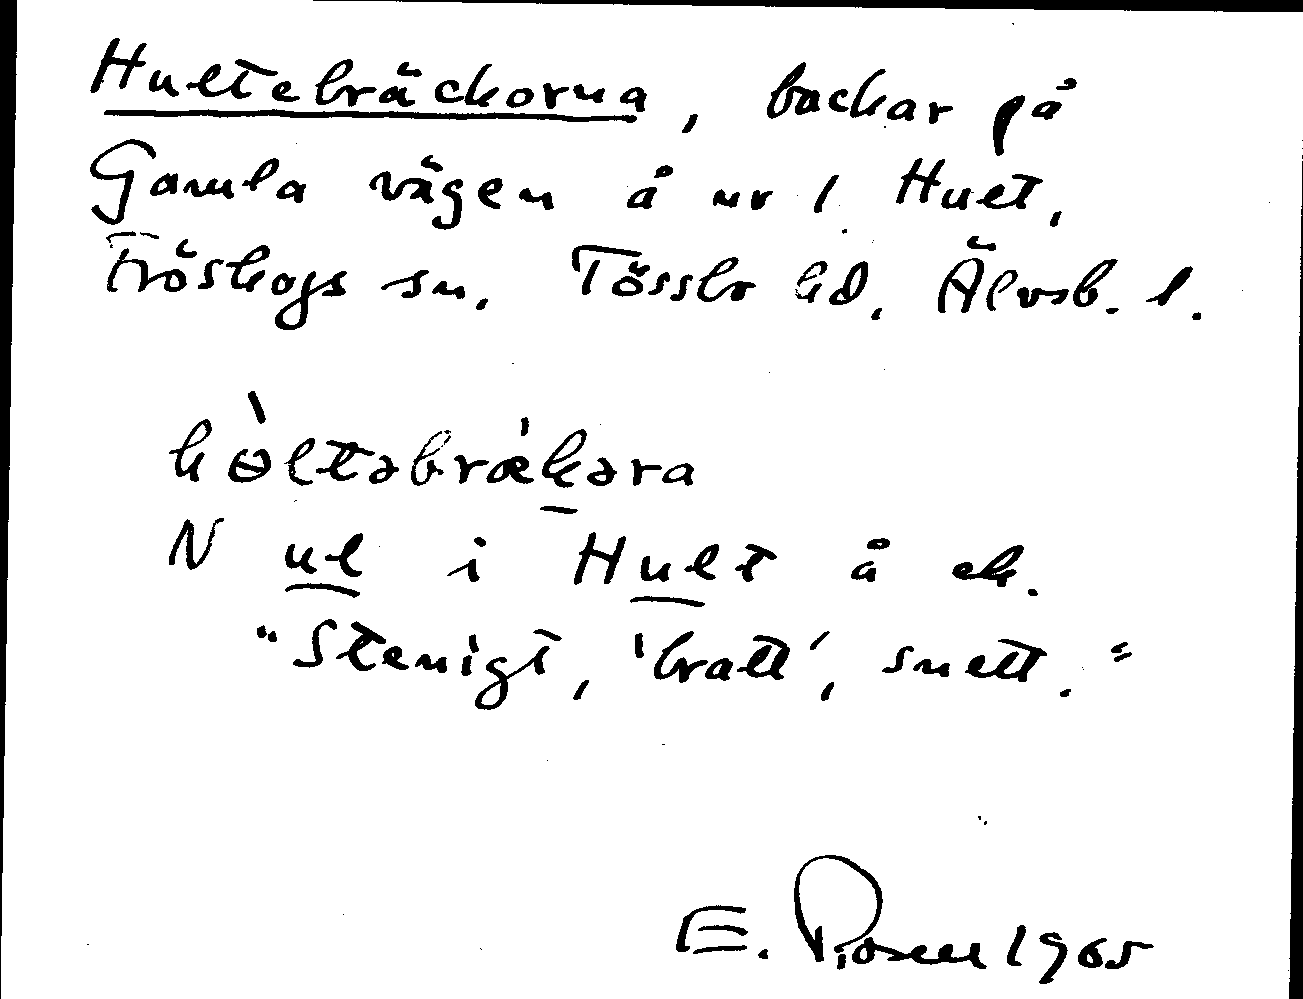 Hultebräckorna, backar på
Gamla vägen å nr 1 Hult,
Fröskogs sn. Tössbo hd. Älvsb. l.
hɵ̀ltəbrækəra
N ul i Hult å ek.
"Stenigt, 'bratt', snett."
E. Rosell 1965